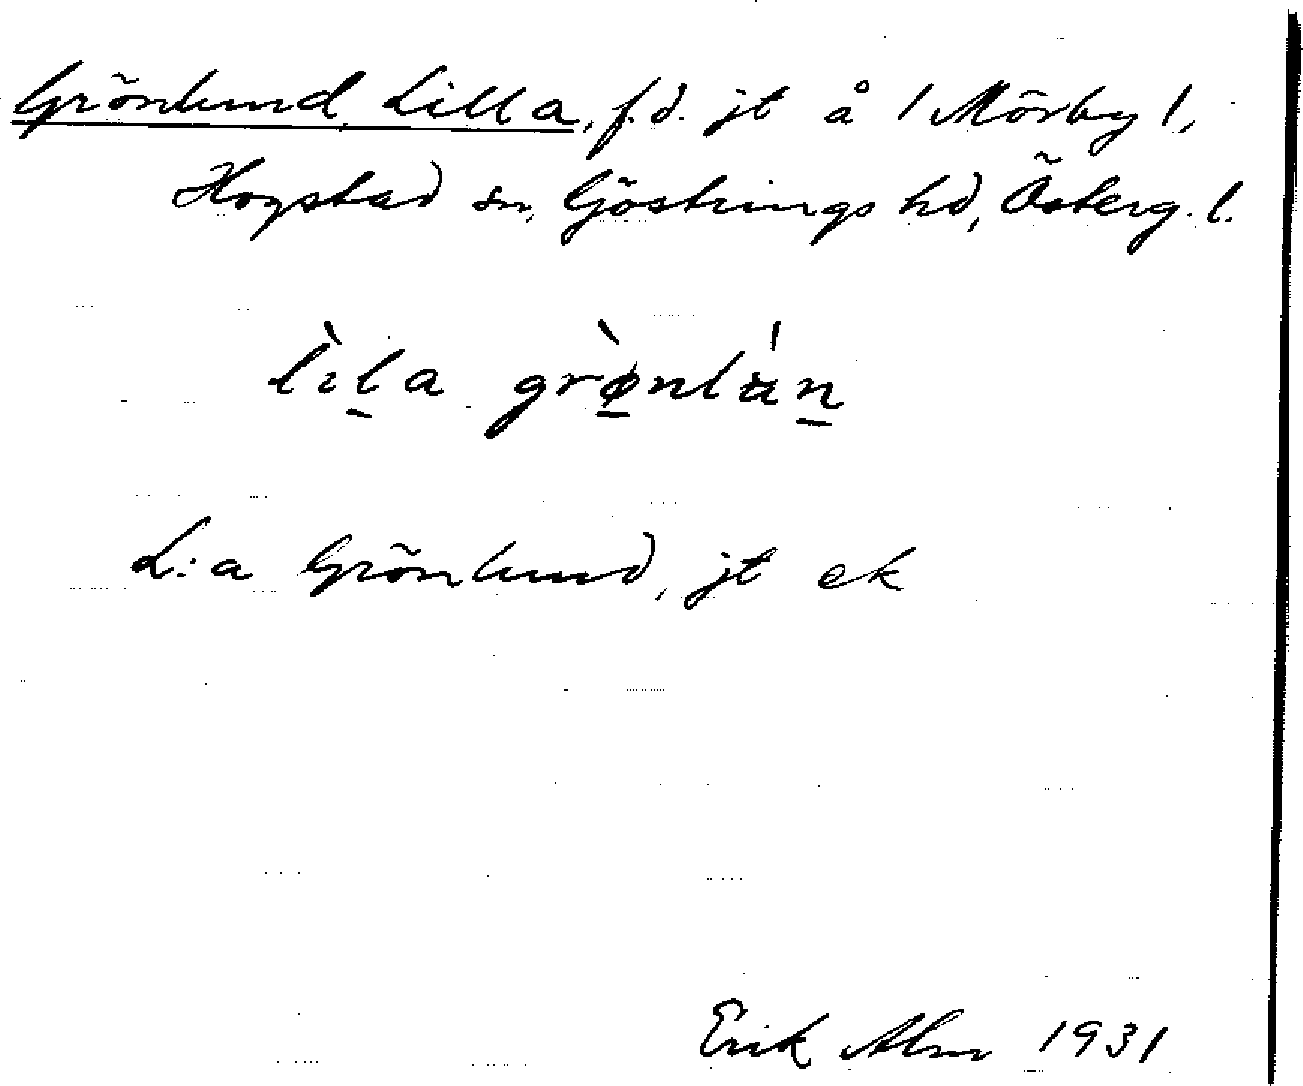 Grönlund, Lilla, f.d. jt å 1 Mörby 1,
Hogstad sn, Göstrings hd, Österg. l.
lìla grø̀nlán
L:a Grönlund, jt ek
Erik Alm 1931